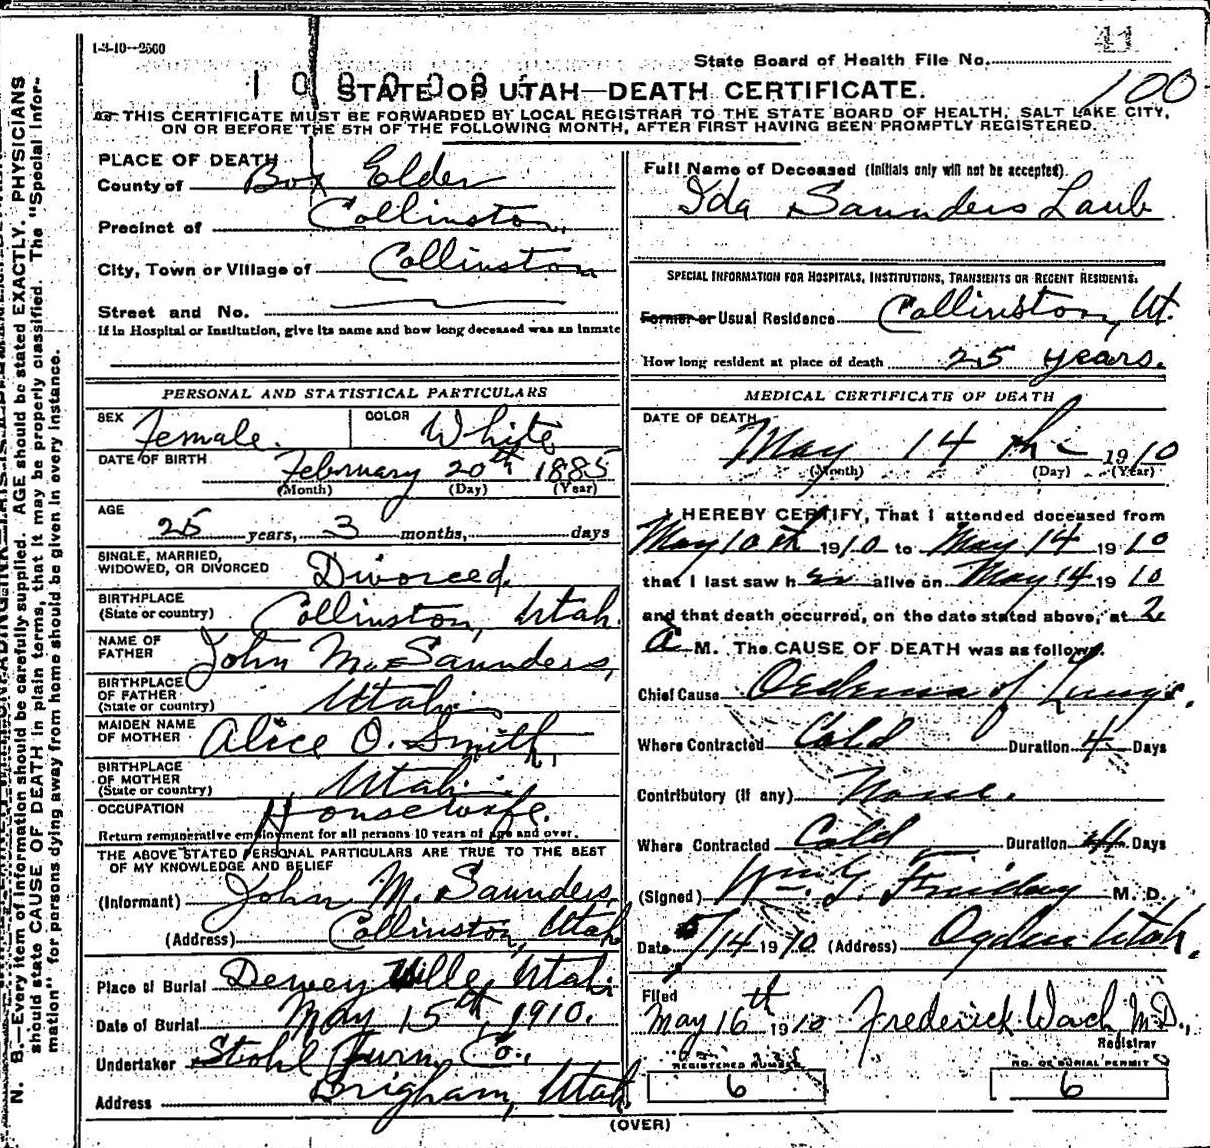 1-3-10--2500
41
State Board of Health File No.
100
STATE OF UTAH—DEATH CERTIFICATE.
THIS CERTIFICATE MUST BE FORWARDED BY LOCAL REGISTRAR TO THE STATE BOARD OF HEALTH, SALT LAKE CITY,
ON OR BEFORE THE 5TH OF THE FOLLOWING MONTH, AFTER FIRST HAVING BEEN PROMPTLY REGISTERED.
N. B.—Every item of information should be carefully supplied. AGE should be stated EXACTLY. PHYSICIANS
should state CAUSE OF DEATH in plain terms, that it may be properly classified. The "Special Infor-
mation" for persons dying away from home should be given in every instance.
PLACE OF DEATH
County of Box Elder
Precinct of Collinston
City, Town or Village of Collinston
Street and No.
If in Hospital or Institution, give its name and how long deceased was an inmate
PERSONAL AND STATISTICAL PARTICULARS
SEX Female. COLOR White
DATE OF BIRTH February 20th 1885
(Month) (Day) (Year)
AGE
25 years, 3 months, days
SINGLE, MARRIED,
WIDOWED, OR DIVORCED Divorced.
BIRTHPLACE
(State or country) Collinston, Utah.
NAME OF
FATHER John M. Saunders,
BIRTHPLACE
OF FATHER
(State or country) Utah
MAIDEN NAME
OF MOTHER Alice O. Smith,
BIRTHPLACE
OF MOTHER
(State or country) Utah
OCCUPATION Housewife.
Return remunerative employment for all persons 10 years of age and over.
THE ABOVE STATED PERSONAL PARTICULARS ARE TRUE TO THE BEST
OF MY KNOWLEDGE AND BELIEF
(Informant) John M. Saunders,
(Address) Collinston, Utah
Place of Burial Deweyville, Utah
Date of Burial May 15th, 1910.
Undertaker Stohl Furn. Co.,
Address Brigham, Utah.
Full Name of Deceased (Initials only will not be accepted).
Ida Saunders Laub
SPECIAL INFORMATION FOR HOSPITALS, INSTITUTIONS, TRANSIENTS OR RECENT RESIDENTS.
Former or Usual Residence Collinston, Ut.
How long resident at place of death 25 years.
MEDICAL CERTIFICATE OF DEATH
DATE OF DEATH
May 14 th 1910
(Month) (Day) (Year)
I HEREBY CERTIFY, That I attended deceased from
May 10th 1910 to May 14 1910
that I last saw her alive on May 14 1910
and that death occurred, on the date stated above, at 2
A M. The CAUSE OF DEATH was as follows:
Chief Cause Oedema of Lungs.
Where Contracted Cold Duration 4 Days
Contributory (if any) None.
Where Contracted Cold Duration 4 Days
(Signed) M. D.
Date 5/14 1910 (Address) Ogden Utah.
Filed
May 16th 1910 Frederick Wach M.D.,
Registrar
REGISTERED NUMBER NO. OF BURIAL PERMIT
6 6
(OVER)